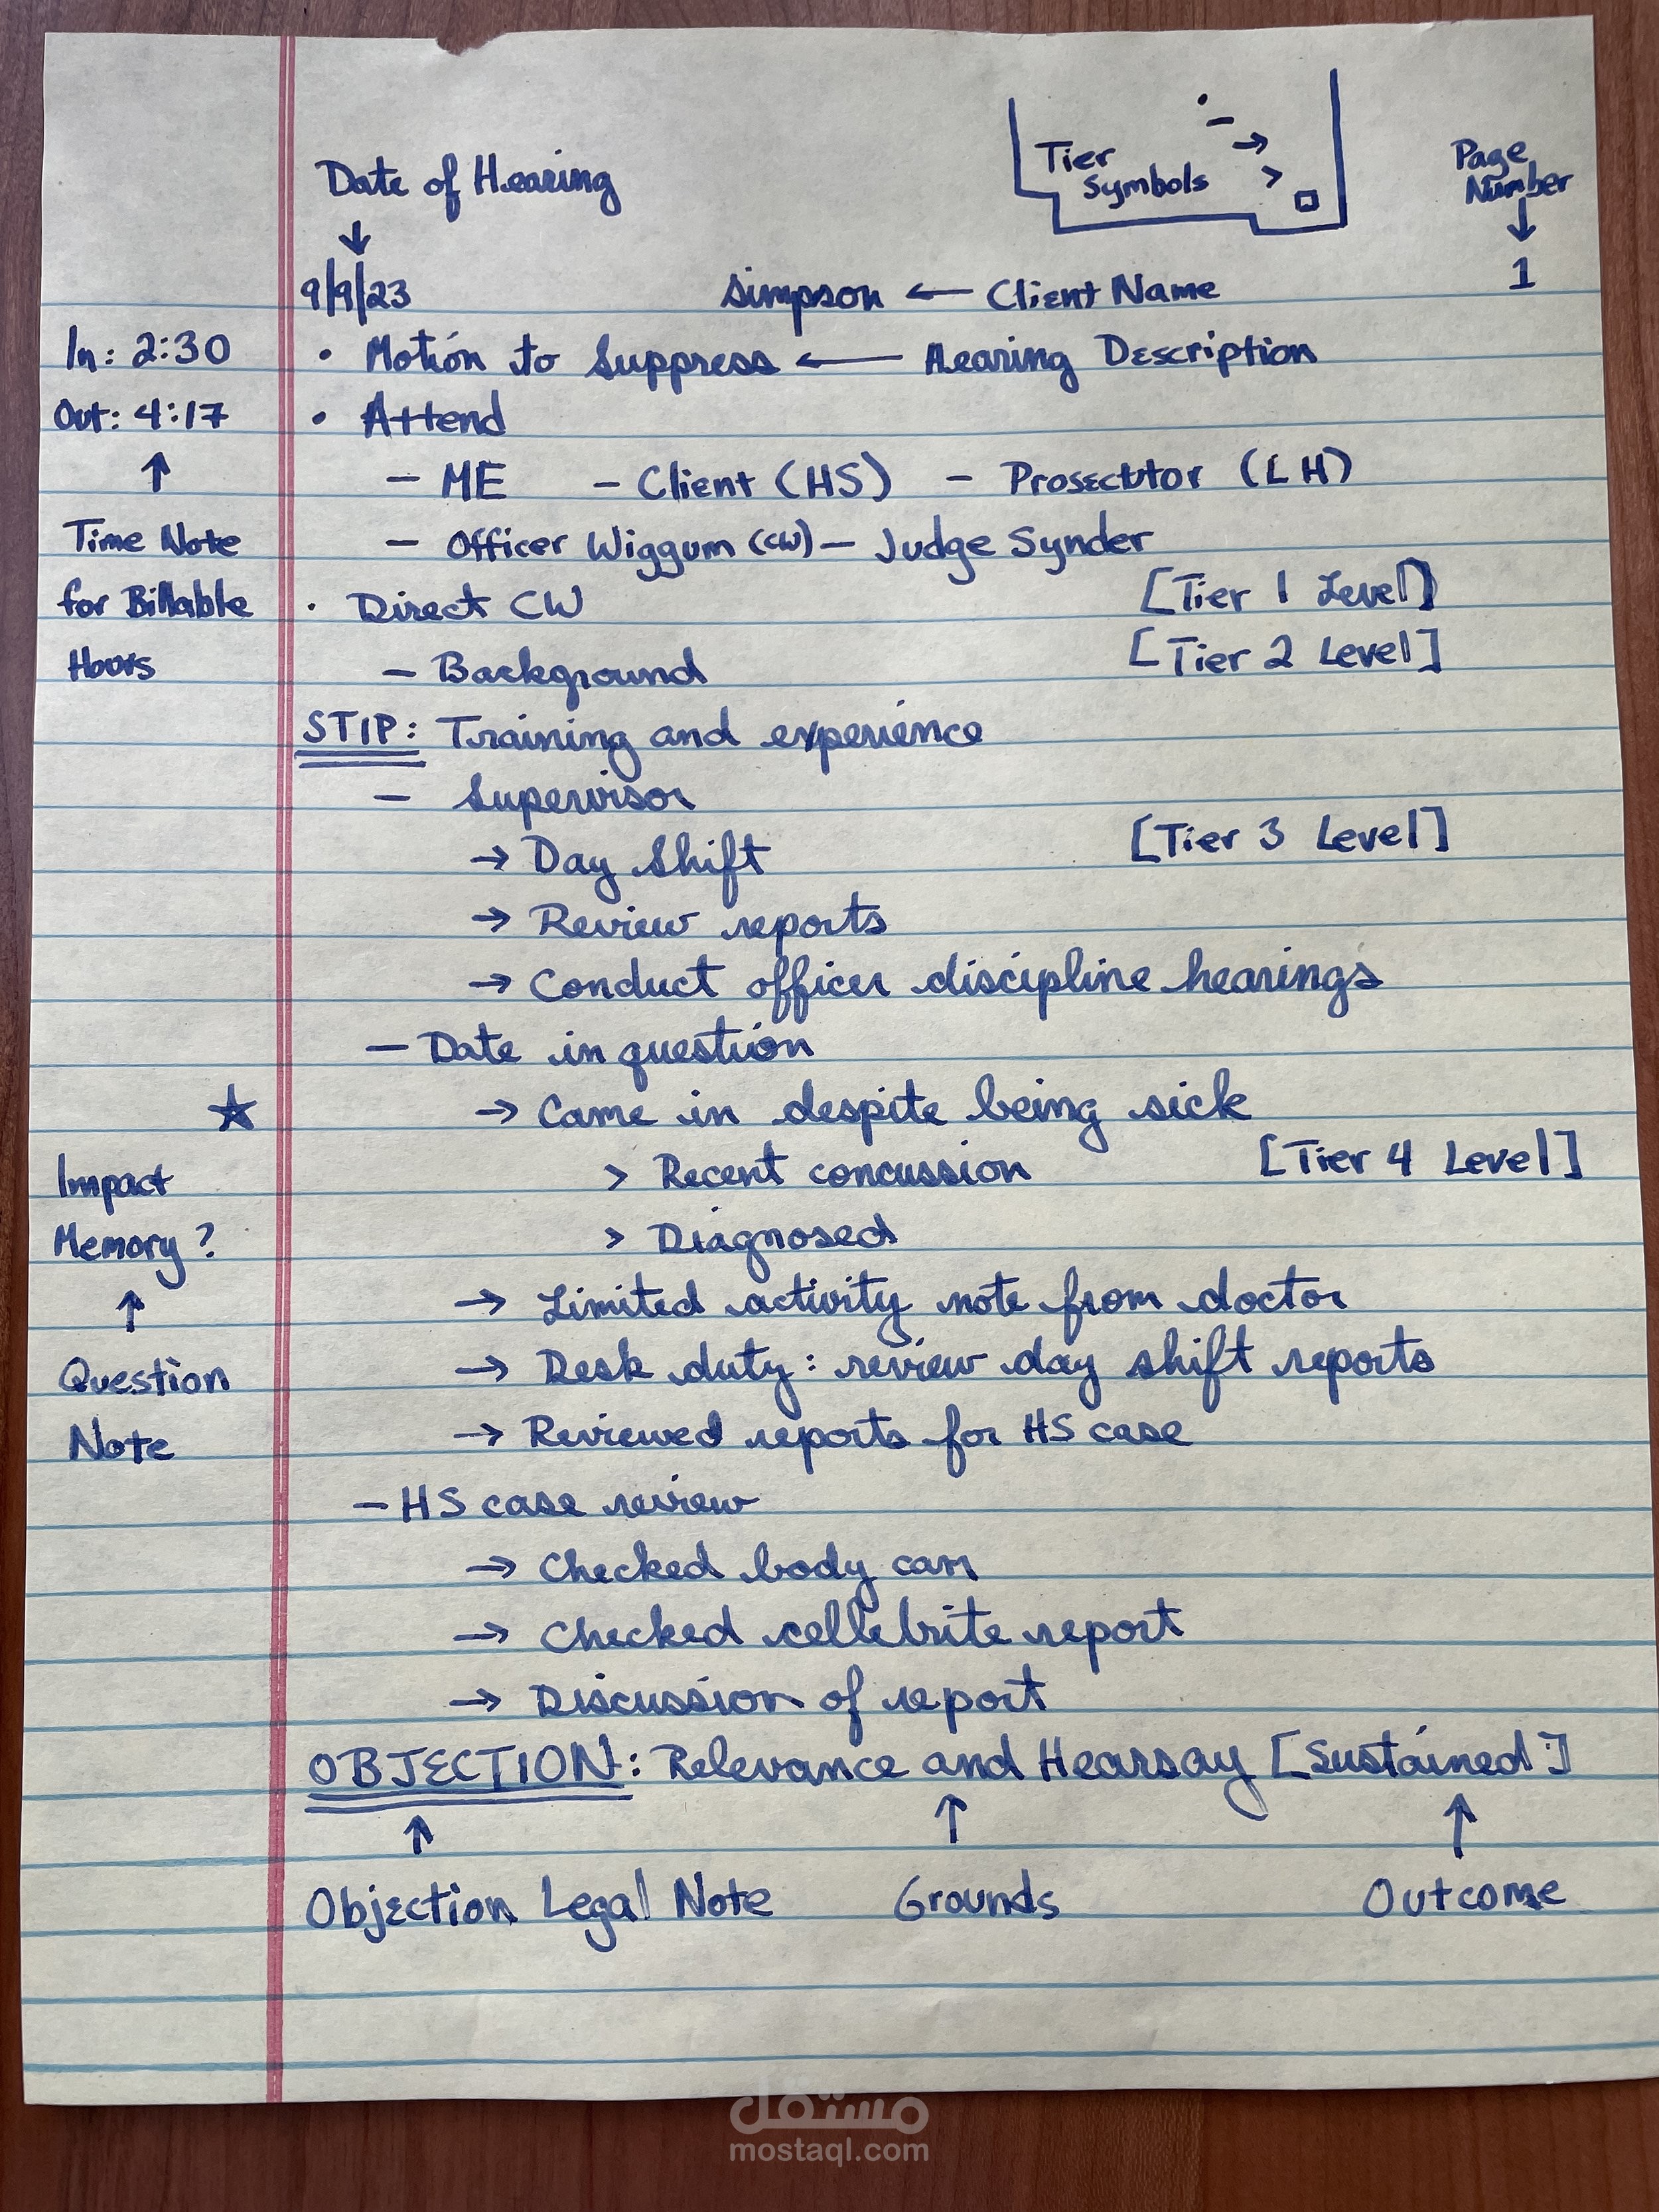 Date of Hearing
↓
Tier
Symbols
• – → > □
Page
Number
↓
9/9/23 Simpson ← Client Name 1
In: 2:30 • Motion to Suppress ← Hearing Description
Out: 4:17 • Attend
↑ – ME – Client (HS) – Prosecutor (LH)
Time Note – Officer Wiggum (CW) – Judge Synder
for Billable • Direct CW [Tier 1 Level]
Hours – Background [Tier 2 Level]
STIP: Training and experience
– Supervisor
→ Day Shift [Tier 3 Level]
→ Review reports
→ Conduct officer discipline hearings
– Date in question
☆ → Came in despite being sick
Impact > Recent concussion [Tier 4 Level]
Memory? > Diagnosed
↑ → Limited activity note from doctor
Question → Desk duty: review day shift reports
Note → Reviewed reports for HS case
– HS case review
→ Checked body cam
→ Checked cellebrite report
→ Discussion of report
OBJECTION: Relevance and Hearsay [Sustained]
↑ ↑ ↑
Objection Legal Note Grounds Outcome
مستقل
mostaql.com